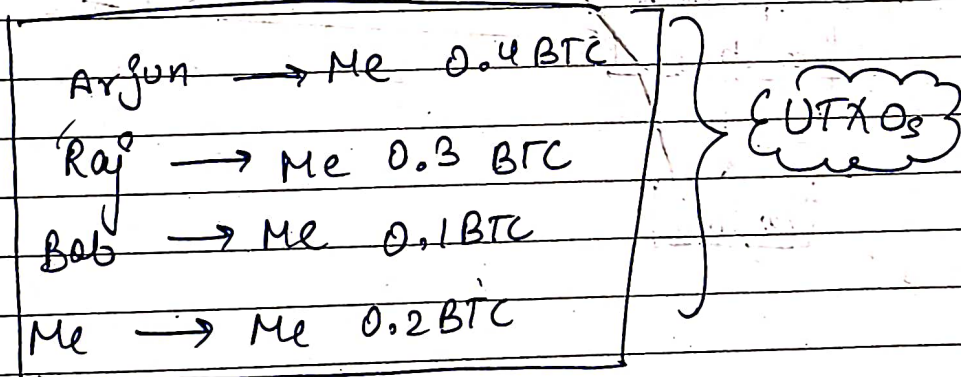 Arjun → Me 0.4 BTC
Raj → Me 0.3 BTC
Bob → Me 0.1 BTC
Me → Me 0.2 BTC
UTXOs